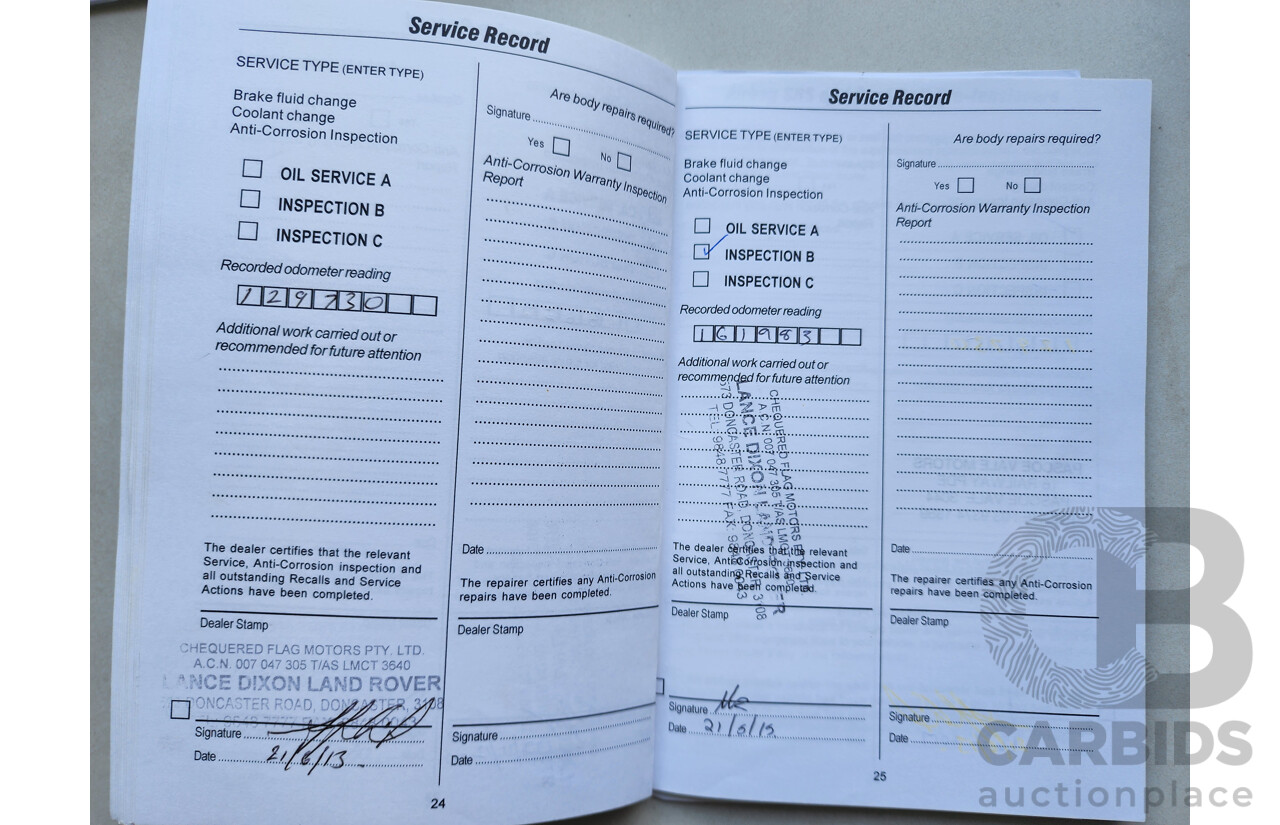 Service Record
SERVICE TYPE (ENTER TYPE)
Brake fluid change
Coolant change
Anti-Corrosion Inspection
OIL SERVICE A
INSPECTION B
INSPECTION C
Recorded odometer reading
129730
Additional work carried out or
recommended for future attention
The dealer certifies that the relevant
Service, Anti-Corrosion inspection and
all outstanding Recalls and Service
Actions have been completed.
Dealer Stamp
CHEQUERED FLAG MOTORS PTY. LTD.
A.C.N. 007 047 305 T/AS LMCT 3640
LANCE DIXON LAND ROVER
DONCASTER ROAD, DONCASTER, 3108
Signature
Date 21/6/13
24
Are body repairs required?
Signature
Yes No
Anti-Corrosion Warranty Inspection
Report
Date
The repairer certifies any Anti-Corrosion
repairs have been completed.
Dealer Stamp
Signature
Date
Service Record
SERVICE TYPE (ENTER TYPE)
Brake fluid change
Coolant change
Anti-Corrosion Inspection
OIL SERVICE A
INSPECTION B
INSPECTION C
Recorded odometer reading
161983
Additional work carried out or
recommended for future attention
CHEQUERED FLAG MOTORS
A.C.N. 007 047 305 T/AS LMCT
LANCE DIXON
673 DONCASTER ROAD, DONCASTER 3108
TEL: 9848 7777 FAX:
The dealer certifies that the relevant
Service, Anti-Corrosion inspection and
all outstanding Recalls and Service
Actions have been completed.
Dealer Stamp
Signature
Date 21/5/15
Are body repairs required?
Signature
Yes No
Anti-Corrosion Warranty Inspection
Report
Date
The repairer certifies any Anti-Corrosion
repairs have been completed.
Dealer Stamp
Signature
Date
25
CARBIDS
auctionplace